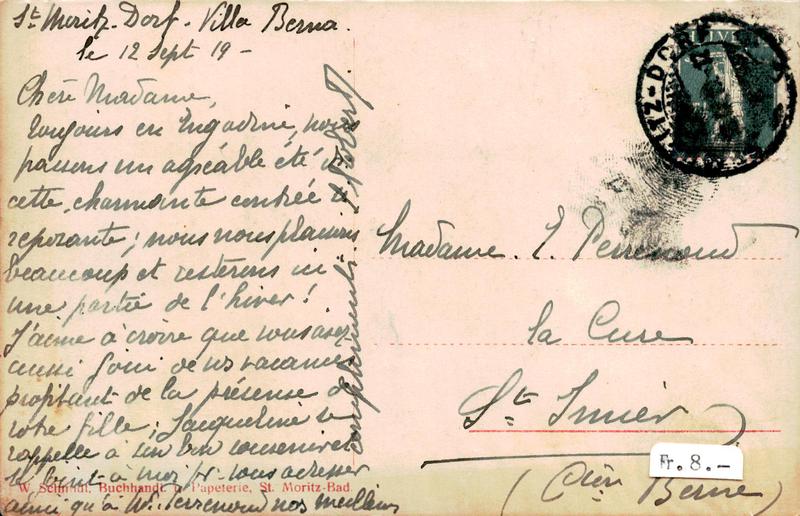 St. Moritz-Dorf. Villa Berna.
le 12 Sept 19-
Chère Madame,
Toujours en Engadine, nous
passons un agréable été ds
cette charmante contrée si
reposante; nous nous plaisons
beaucoup et resterons ici
une partie de l'hiver!
J'aime à croire que vous avez
aussi joui de vos vacances
profitant de la présense de
votre fille; Jacqueline se
rappelle à son bon souvenir et
se joint à moi pr. vous adresser
ainsi qu'à M. Perrenoud nos meilleurs
compliments
W. Schmidt, Buchhandl. u. Papeterie, St. Moritz-Bad
ITZ-DORF
HELVETIA
Madame. E. Perrenoud
la Cure
St. Imier
(Cton Berne)
Fr. 8.-